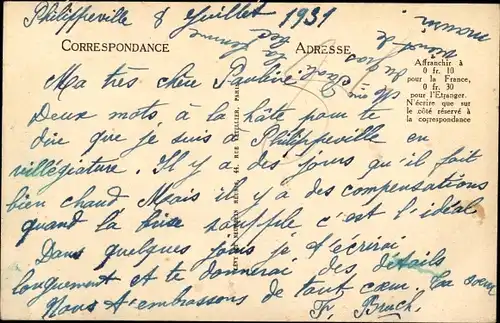 Philippeville 8 Juillet 1931
CORRESPONDANCE
ADRESSE
Affranchir à
0 fr. 10
pour la France,
0 fr. 30
pour l'Etranger.
N'écrire que sur
le côté réservé à
la correspondance
Ma très chère Pauline
Deux mots à la hâte pour te
dire que je suis à Philippeville en
villégiature. Il y a des jours qu'il fait
bien chaud Mais il y a des compensations
quand la brise souffle, c'est l'idéal
Dans quelques jours je t'écrirai
longuement et te donnerai des détails
Nous t'embrassons de tout cœur. Ta soeur
F. Bruch